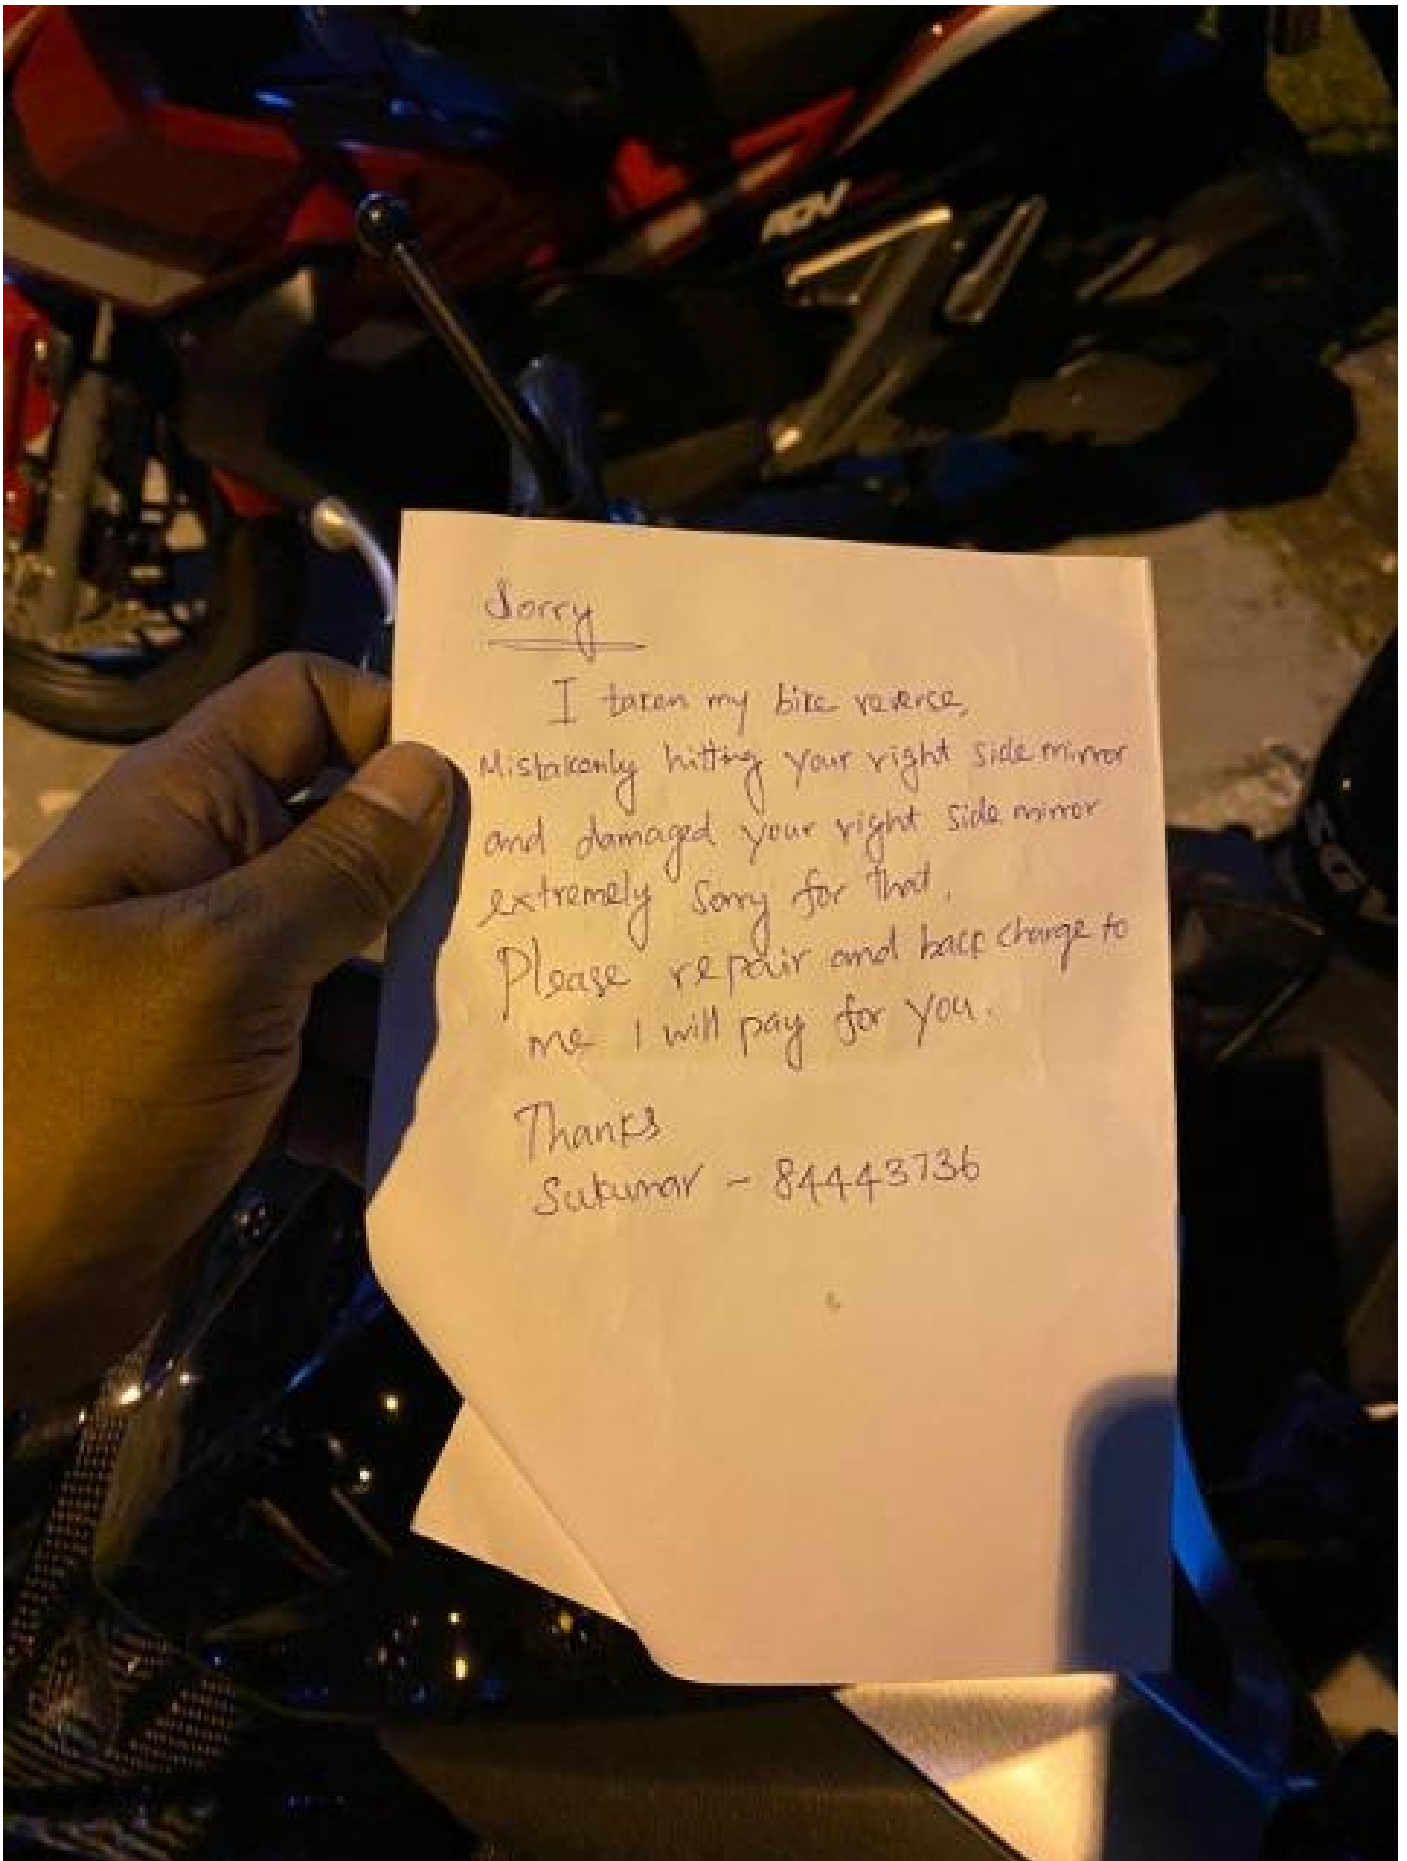 ADV
Sorry
I taken my bike reverse,
Mistakenly hitting your right side mirror
and damaged your right side mirror
extremely sorry for that.
Please repair and back charge to
me I will pay for you.
Thanks
Sukumar - 84443736